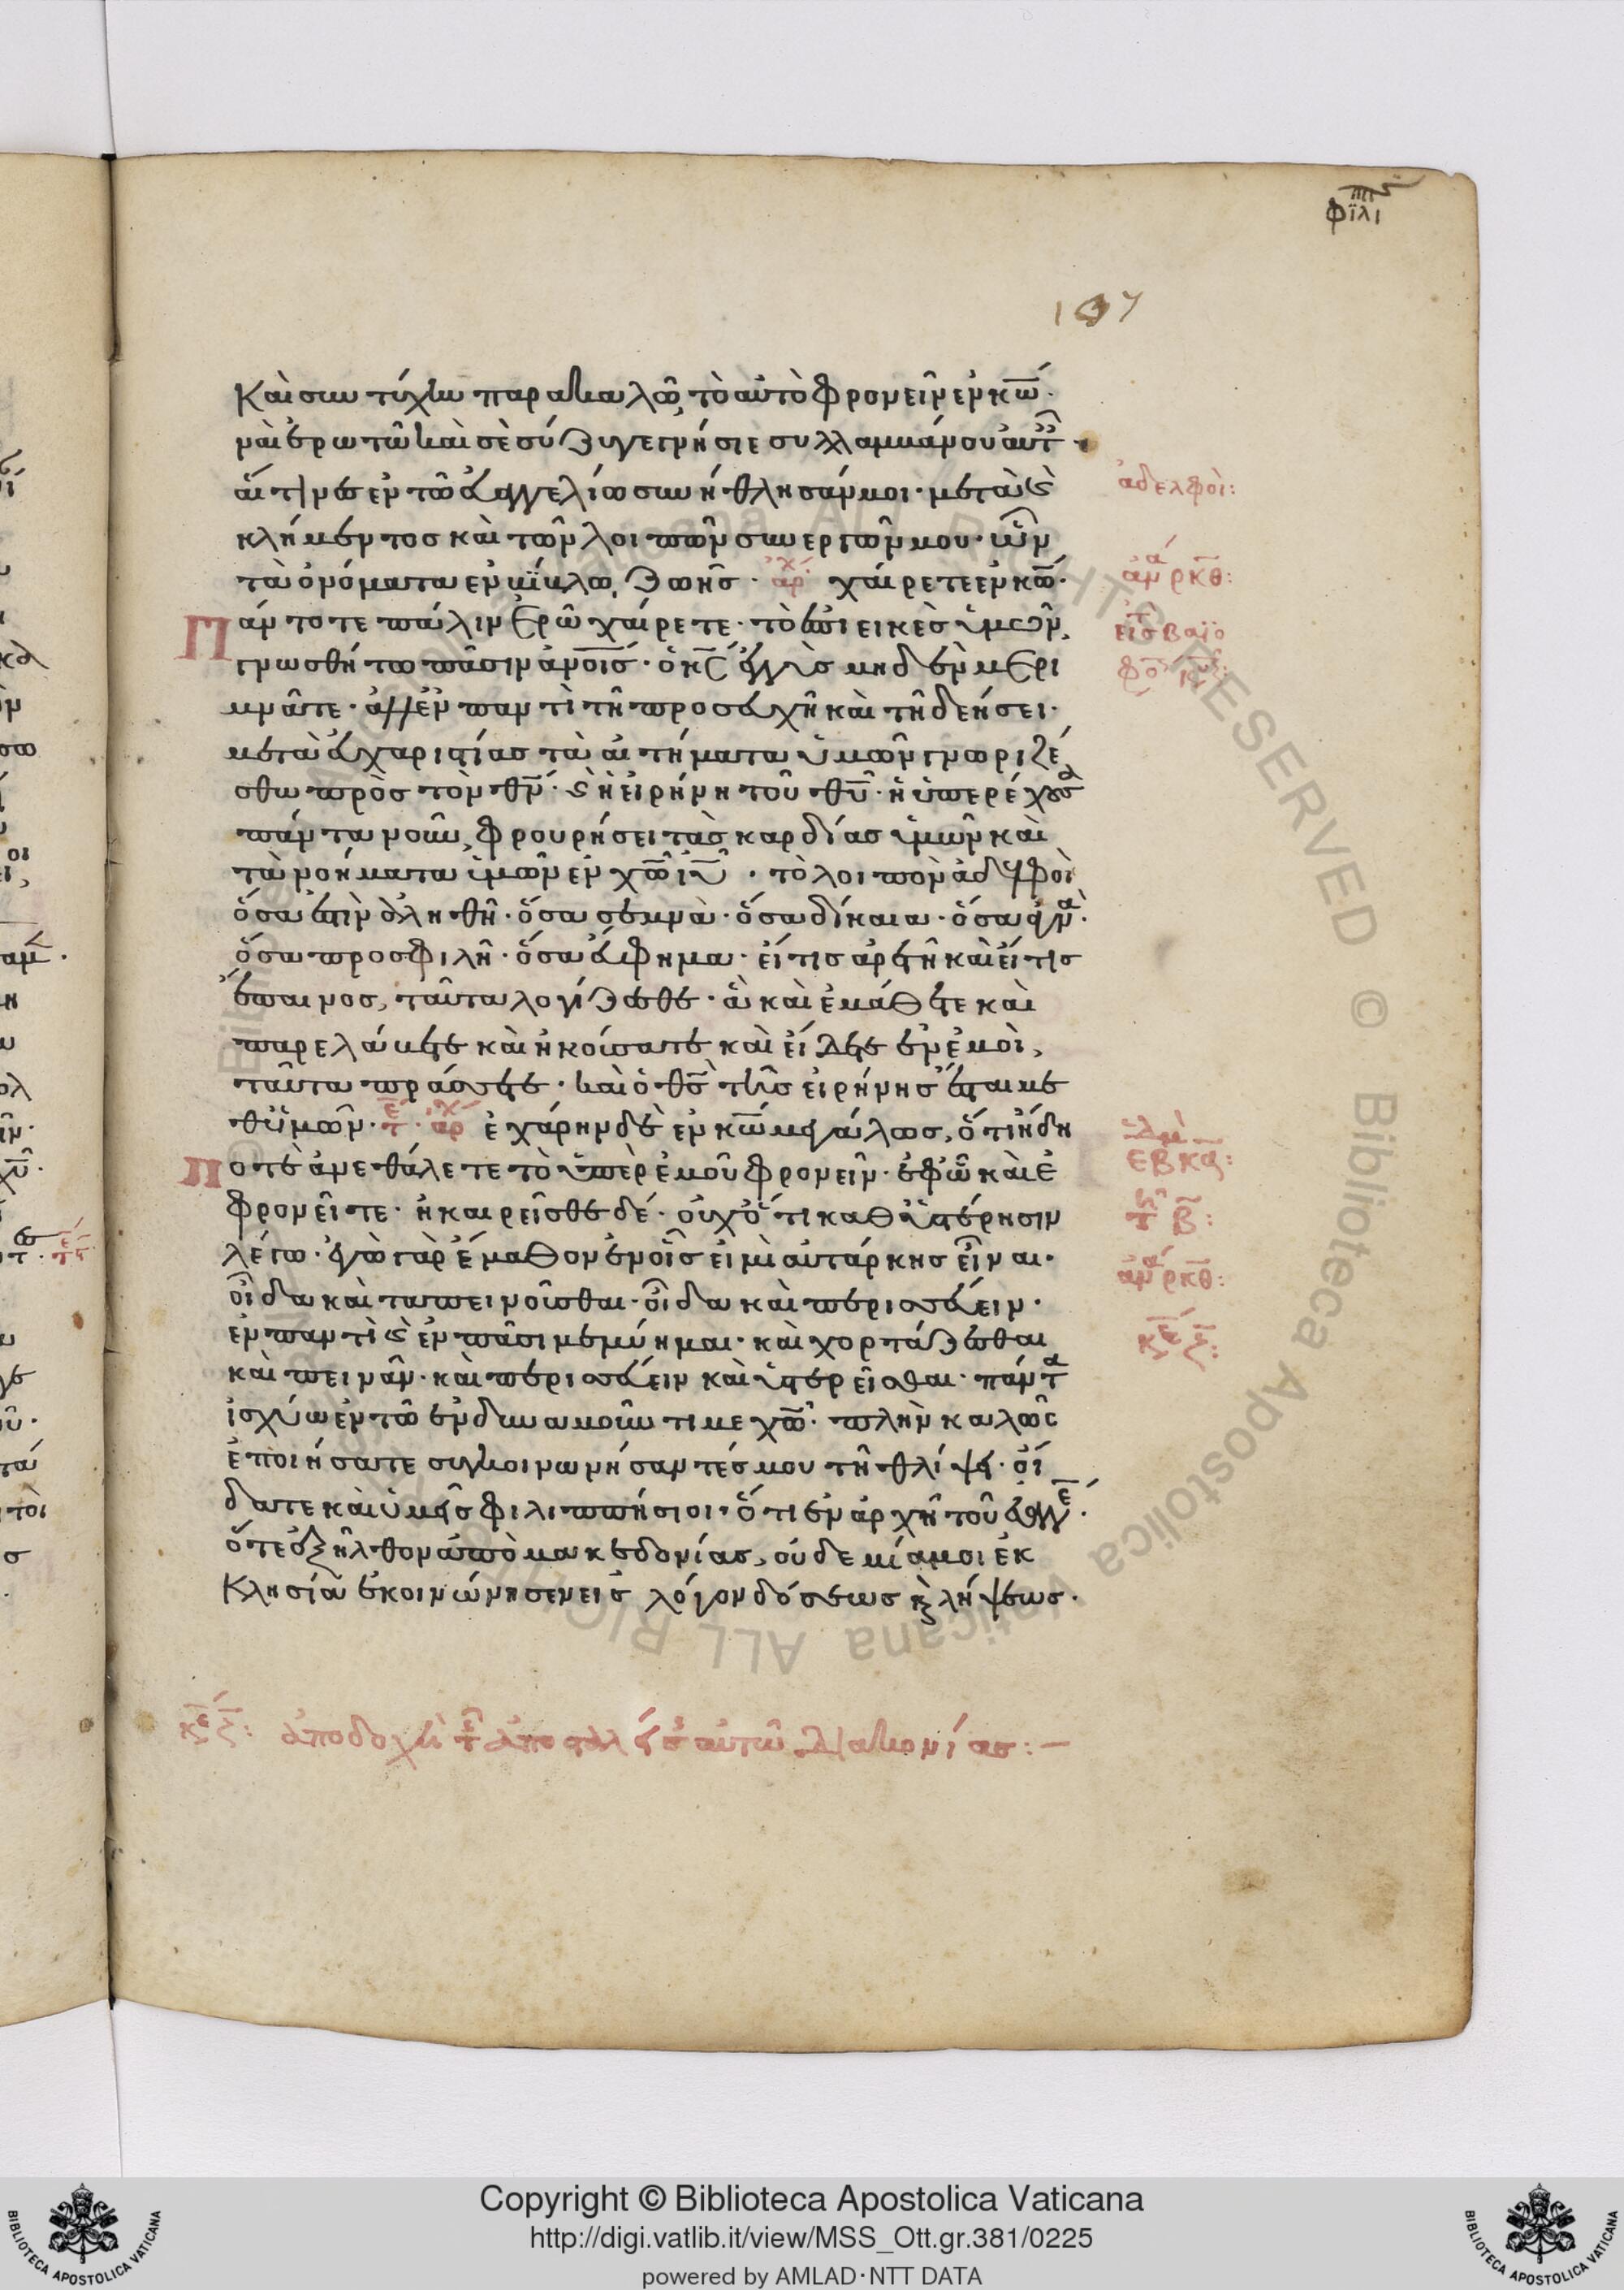 φιλι
107
Καὶ συντύχην παρακαλῶ, τὸ αὐτὸ φρονεῖν ἐν κω̅.
ναὶ ἐρωτῶ καὶ σὲ σύζυγε γνήσιε συλλαμβάνου αὐτ
αἵτινες ἐν τῶ εὐαγγελίω συνήθλησάν μοι· μετὰ ϗ
κλήμεντος καὶ τῶν λοιπῶν συνεργῶν μου· ὧν
τὰ ὀνόματα ἐν βίβλω ζωῆς· ἀρχ χαίρετε ἐν κω̅·
Πάντοτε πάλιν ἐρῶ χαίρετε· τὸ ἐπιεικὲς ὑμῶν,
γνωσθήτω πᾶσιν ἀνοις· ὁ κς ἐγγὺς μηδὲν μερι
μνᾶτε· ἀλλ' ἐν παντὶ τῆ προσευχῆ καὶ τῆ δεήσει·
μετὰ εὐχαριστίας τὰ αἰτήματα ὑμῶν γνωριζέ
σθω πρὸς τὸν θν· ϗ ἡ εἰρήνη τοῦ θυ· ἡ ὑπερέχουσα
πάντα νοῦν, φρουρήσει τὰς καρδίας ὑμῶν καὶ
τὰ νοήματα ὑμῶν ἐν χω ιυ· τὸ λοιπὸν ἀδελφοὶ
ὅσα ἐστὶν ἀληθῆ· ὅσα σεμνὰ· ὅσα δίκαια· ὅσα ἁγνὰ·
ὅσα προσφιλῆ· ὅσα εὔφημα· εἴ τις ἀρετὴ καὶ εἴ τις
ἔπαινος, ταῦτα λογίζεσθε· ἃ καὶ ἐμάθετε καὶ
παρελάβετε καὶ ἠκούσατε καὶ εἴδετε ἐν ἐμοὶ,
ταῦτα πράσσετε· καὶ ὁ θς τῆς εἰρήνης ἔσται με
θ' ὑμῶν· τε· ἀρχ ἐχάρην δὲ ἐν κω μεγάλως, ὅτι ἤδη
ποτὲ ἀνεθάλετε τὸ ὑπὲρ ἐμοῦ φρονεῖν· ἐφ' ὧ καὶ ἐ
φρονεῖτε· ἠκαιρεῖσθε δέ· οὐχ ὅτι καθ' ὑστέρησιν
λέγω· ἐγὼ γὰρ ἔμαθον ἐν οἷς εἰμὶ αὐτάρκης εἶναι·
οἶδα καὶ ταπεινοῦσθαι· οἶδα καὶ περισσεύειν·
ἐν παντὶ ϗ ἐν πᾶσι μεμύημαι· καὶ χορτάζεσθαι
καὶ πεινᾶν· καὶ περισσεύειν καὶ ὑστερεῖσθαι· πάντα
ἰσχύω ἐν τῶ ἐνδυναμοῦντι με χω· πλὴν καλῶς
ἐποιήσατε συγκοινωνήσαντές μου τῆ θλίψει· οἴ
δατε καὶ ὑμεῖς φιλιππήσιοι· ὅτι ἐν ἀρχῆ τοῦ εὐαγγε·
ὅτε ἐξῆλθον ἀπὸ μακεδονίας, οὐδεμία μοι ἐκ
κλησία ἐκοινώνησεν εἰς λόγον δόσεως ϗ λήψεως·
ἀδελφοὶ:
ἀνα ρκθ:
εἰς βαϊο
β:
ἀνα ρκθ:
κε ζ:
κε ζ: ἀποδοχὴ τῆς ἀποσταλείσης αὐτῶ διακονίας:-
Copyright © Biblioteca Apostolica Vaticana
http://digi.vatlib.it/view/MSS_Ott.gr.381/0225
powered by AMLAD·NTT DATA
BIBLIOTECA APOSTOLICA VATICANA
BIBLIOTECA APOSTOLICA VATICANA